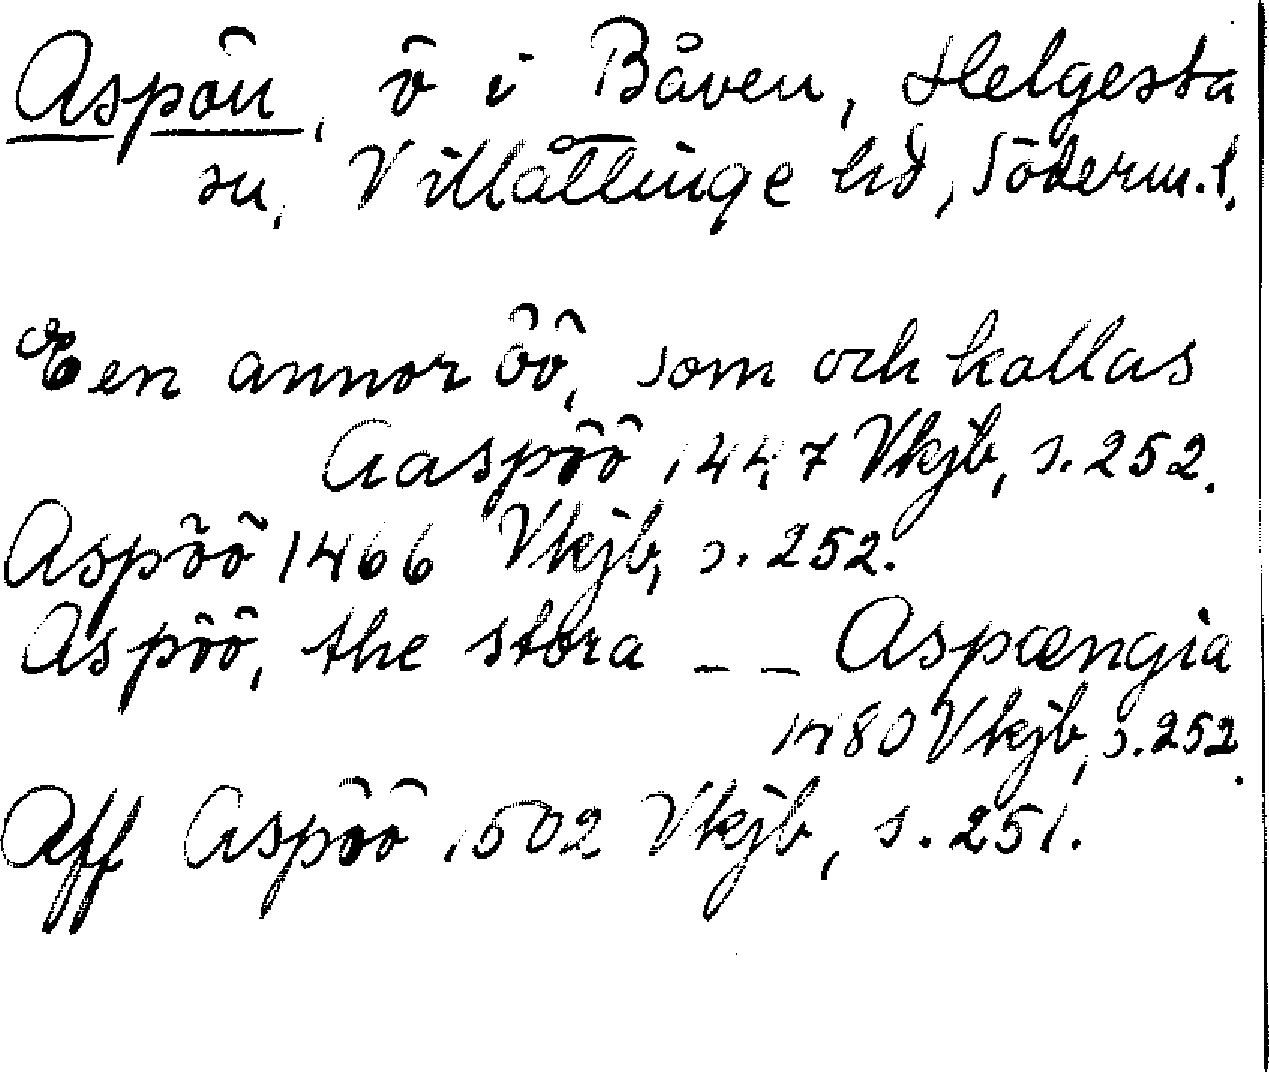 Aspön, ö i Båven, Helgesta
sn, Villåttinge hd, Söderm.l.
Een annor öö, som och kallas
Aaspöö 1447 Vkjb, s. 252.
Aspöö 1466 Vkjb, s. 252.
Aspöö, the stora _ _ Aspængia
1480 Vkjb, s. 252.
Aff Aspöö 1502 Vkjb, s. 251.